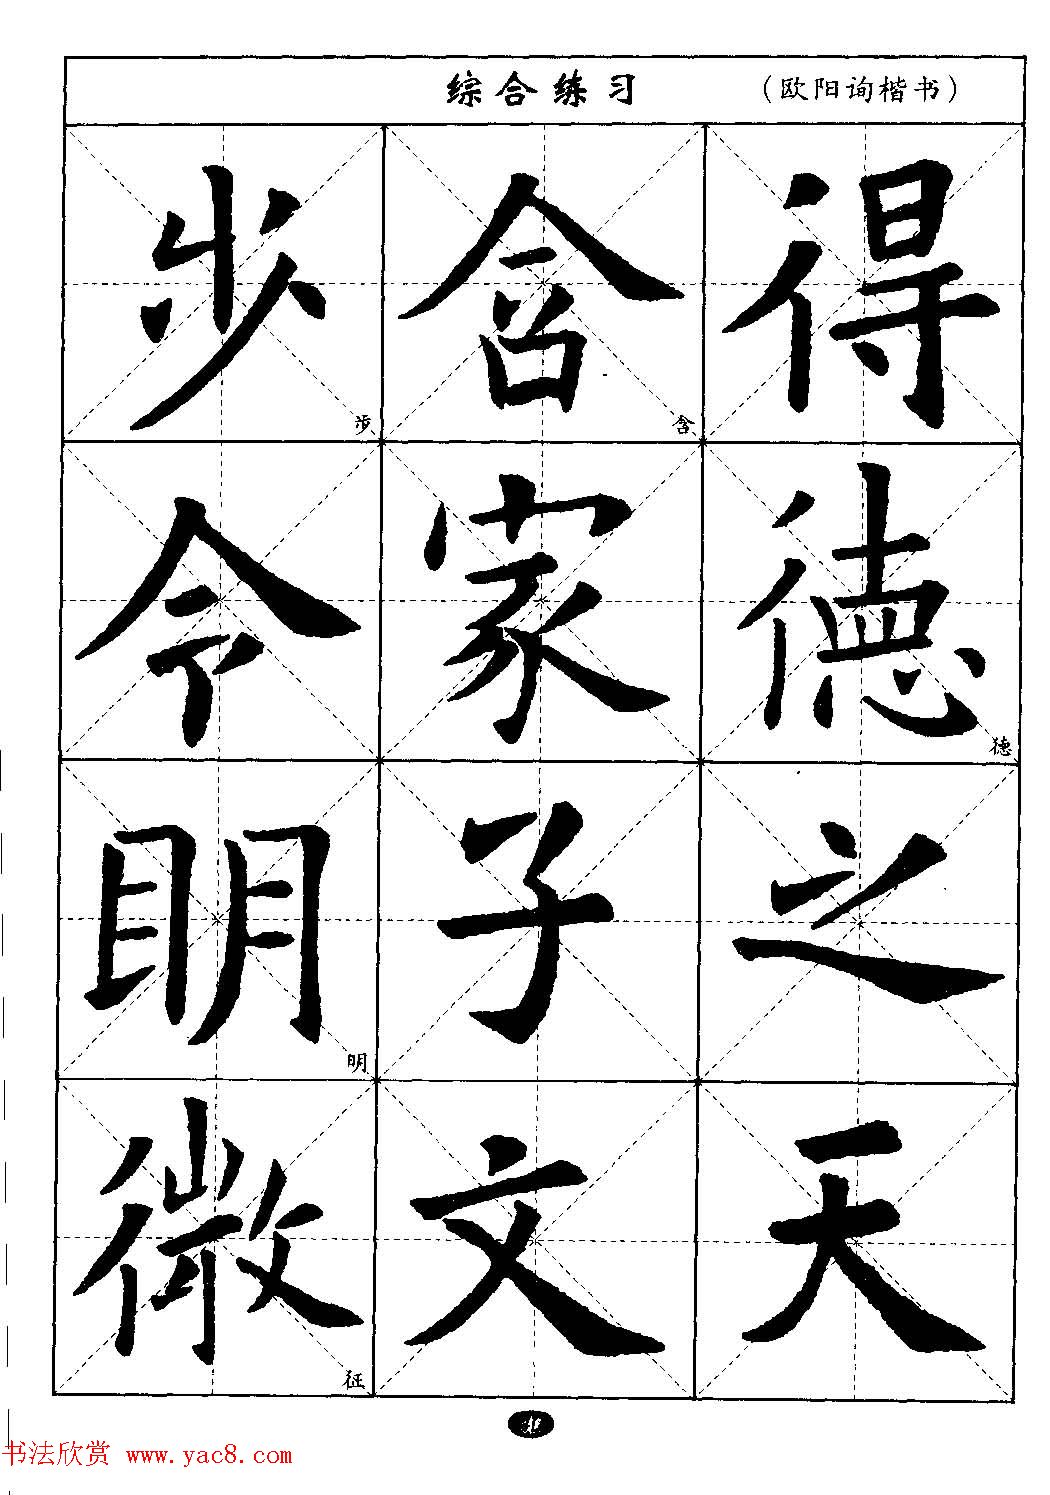 综合练习 (欧阳询楷书)
得徳德之天
含含家子文
步步令明明徵征
书法欣赏 www.yac8.com